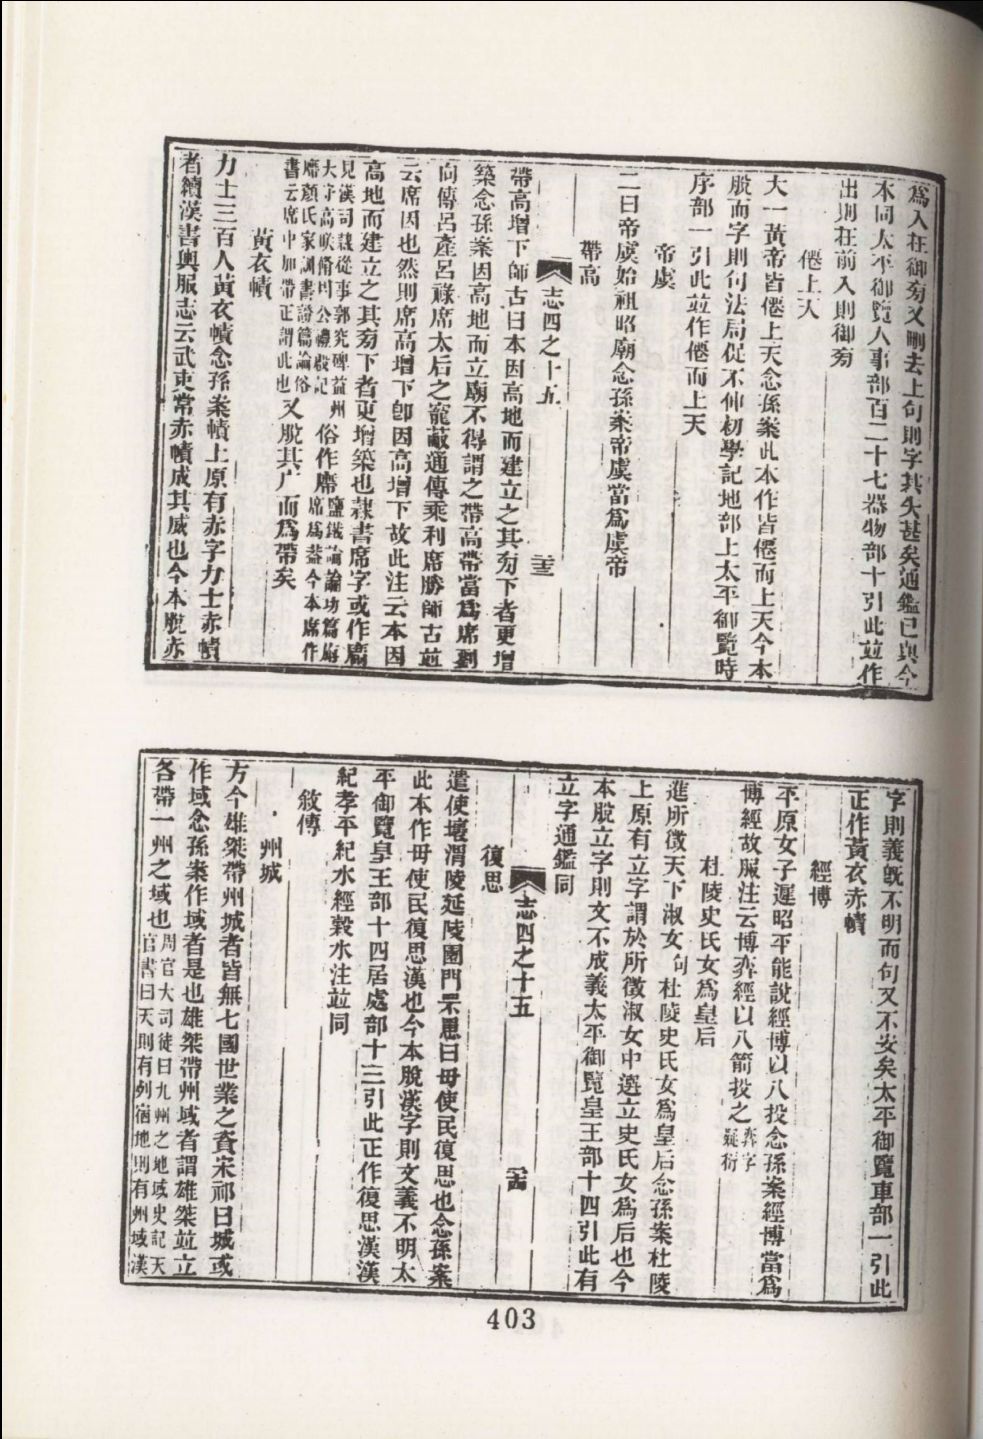 爲入在御旁又刪去上句則字其失甚矣通鑑已與今
本同太平御覽人事部百二十七器物部十引此竝作
出則在前入則御旁
僊上天
大一黃帝皆僊上天念孫案此本作皆僊而上天今本
脫而字則句法局促不伸初學記地部上太平御覽時
序部一引此竝作僊而上天
帝虞
二曰帝虞始祖昭廟念孫案帝虞當爲虞帝
帶高
志四之十五
三
帶高增下師古曰本因高地而建立之其旁下者更增
築念孫案因高地而立廟不得謂之帶高帶當爲席劉
向傳呂產呂祿席太后之寵蔽通傳乘利席勝師古竝
云席因也然則席高增下卽因高增下故此注云本因
高地而建立之其旁下者更增築也隸書席字或作廗
見漢司隸從事郭究碑益州
大守高眹脩周公禮殿記
俗作廗
鹽鐵論論功篇廗
席爲蓋今本席作
廗顏氏家訓書證篇論俗
書云席中加帶正謂此也
又脫其广而爲帶矣
黃衣幘
力士三百人黃衣幘念孫案幘上原有赤字力士赤幘
者續漢書輿服志云武吏常赤幘成其威也今本脫赤
字則義旣不明而句又不安矣太平御覽車部一引此
正作黃衣赤幘
經博
平原女子遲昭平能說經博以八投念孫案經博當爲
博經故服注云博弈經以八箭投之
弈字
疑衍
杜陵史氏女爲皇后
進所徵天下淑女句杜陵史氏女爲皇后念孫案杜陵
上原有立字謂於所徵淑女中選立史氏女爲后也今
本脫立字則文不成義太平御覽皇王部十四引此有
立字通鑑同
志四之十五
復思
遣使壞渭陵延陵園門罘罳曰毋使民復思也念孫案
此本作毋使民復思漢也今本脫漢字則文義不明太
平御覽皇王部十四居處部十三引此正作復思漢漢
紀孝平紀水經穀水注竝同
敘傳
州城
方今雄桀帶州城者皆無七國世業之資宋祁曰城或
作域念孫案作域者是也雄桀帶州域者謂雄桀竝立
各帶一州之域也
周官大司徒曰九州之地域史記天
官書曰天則有列宿地則有州域漢
403